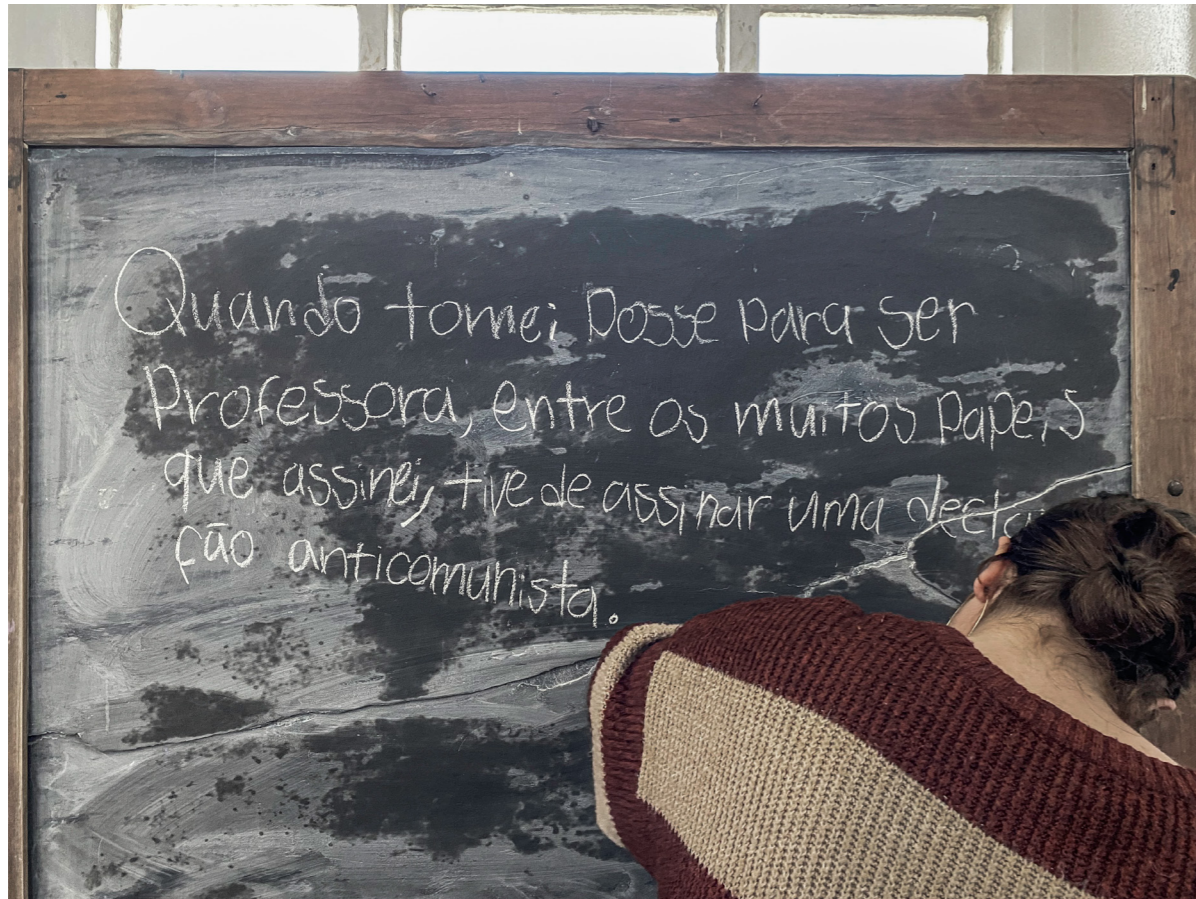 Quando tomei Posse para ser
Professora, entre os muitos papeis
que assinei, tive de assinar uma
ção anticomunista.